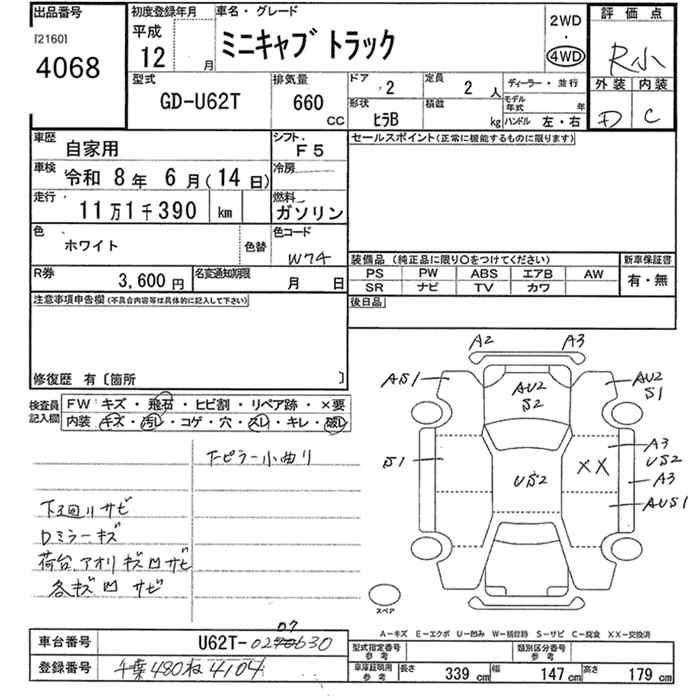 出品番号
[2160]
4068
初度登録年月
平成
12 月
車名・グレード
ミニキャブ トラック
2WD
・
4WD
評価点
R小
外装 内装
D C
型式
GD-U62T
排気量
660
CC
ドア
2
定員
2 人
ディーラー・並行
形状
ヒラB
積載
kg
モデル年式 年
ハンドル 左・右
車歴
自家用
シフト
F5
車検
令和 8年 6月(14日)
冷房
走行
11万1千390 km
燃料
ガソリン
色
ホワイト
色替
色コード
W74
R券
3,600円
名変通知期限
月 日
セールスポイント(正常に機能するものに限ります)
装備品 (純正品に限り〇をつけてください)
PS PW ABS エアB AW
SR ナビ TV カワ
新車保証書
有・無
後日品
注意事項申告欄(不具合内容等は具体的に記入して下さい)
修復歴 有〔箇所 〕
検査員記入欄
FW キズ・飛石・ヒビ割・リペア跡・×要
内装 キズ・汚レ・コゲ・穴・スレ・キレ・破レ
下ピラー小曲リ
下廻リサビ
Dミラーキズ
荷台、アオリキズ凹サビ
各キズ凹サビ
A2 A3
AS1
AU2
S2
AU2
S1
S1
US2
XX
A3
US2
A3
AUS1
スペア
A-キズ E-エクボ U-凹み W-補修跡 S-サビ C-腐食 XX-交換済
車台番号
U62T-
07
630
登録番号
千葉480ね4104
型式指定番号
参考
類別区分番号
参考
車庫証明用
参考
長さ 339cm 幅 147cm 高さ 179cm